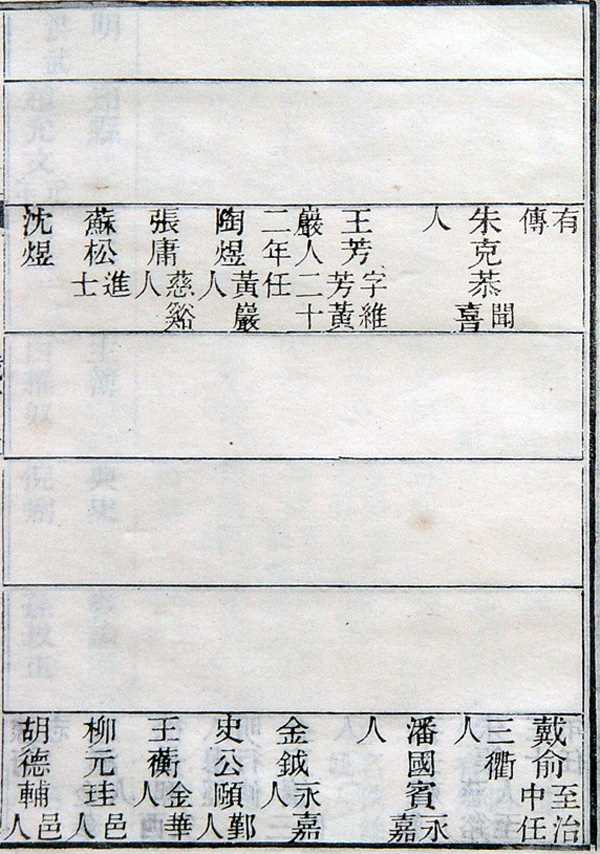 有傳
朱克恭聞喜
人
王芳字維芳黃
巖人二十
二年任
陶煜黃巖人
張庸慈谿人
蘇松進士
沈煜
戴俞至治中任
三衢
人
潘國賓永嘉
人
金鉞永嘉人
史公頤鄞人
王蘅金華人
柳元珪邑人
胡德輔邑人